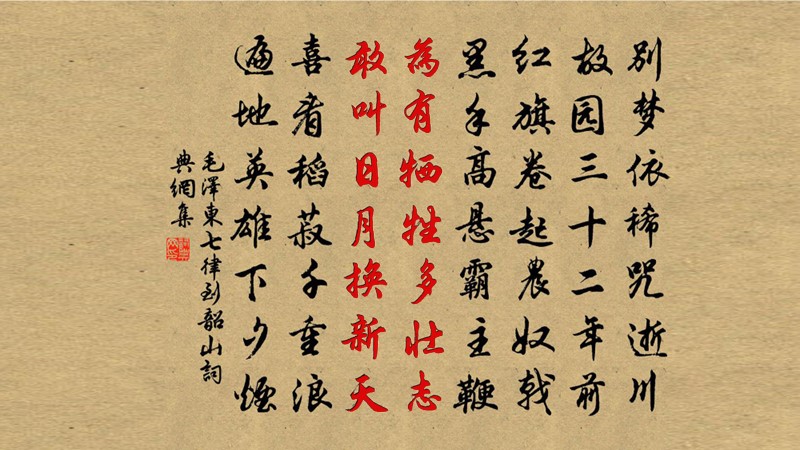 别梦依稀咒逝川
故园三十二年前
红旗卷起農奴戟
黑手高悬霸主鞭
為有牺牲多壮志
敢叫日月换新天
喜看稻菽千重浪
遍地英雄下夕煙
毛澤東七律到韶山詞
典網集